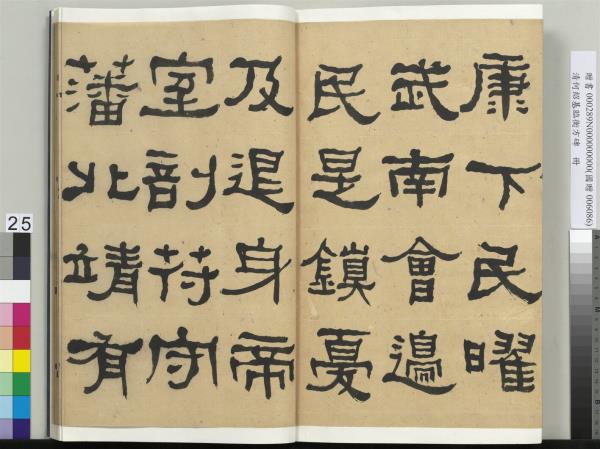 康下民曜
武南會邊
民是鎮憂
及退身帝
室剖符守
藩北靖有
贈書 000289N000000000(國贈 006086)
清何紹基臨衡方碑 冊
25